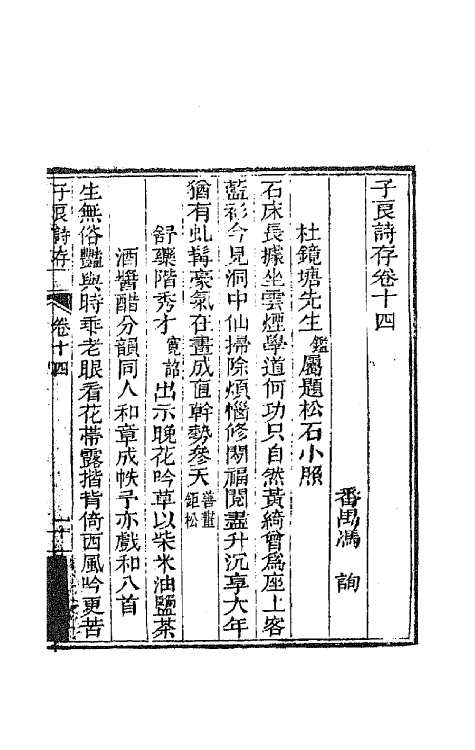 子良詩存卷十四
番禺馮　詢
杜鏡塘先生鑑屬題松石小照
石床長據坐雲煙學道何功只自然黃綺曾爲座上客
藍衫今見洞中仙掃除煩惱修閒福閱盡升沉享大年
猶有虬髯豪氣在畫成直幹勢參天善畫鉅松
舒藥階秀才寬詔出示晚花吟草以柴米油鹽茶
酒醬醋分韻同人和章成帙予亦戲和八首
生無俗豔與時乖老眼看花帶露揩背倚西風吟更苦
子良詩存
卷十四